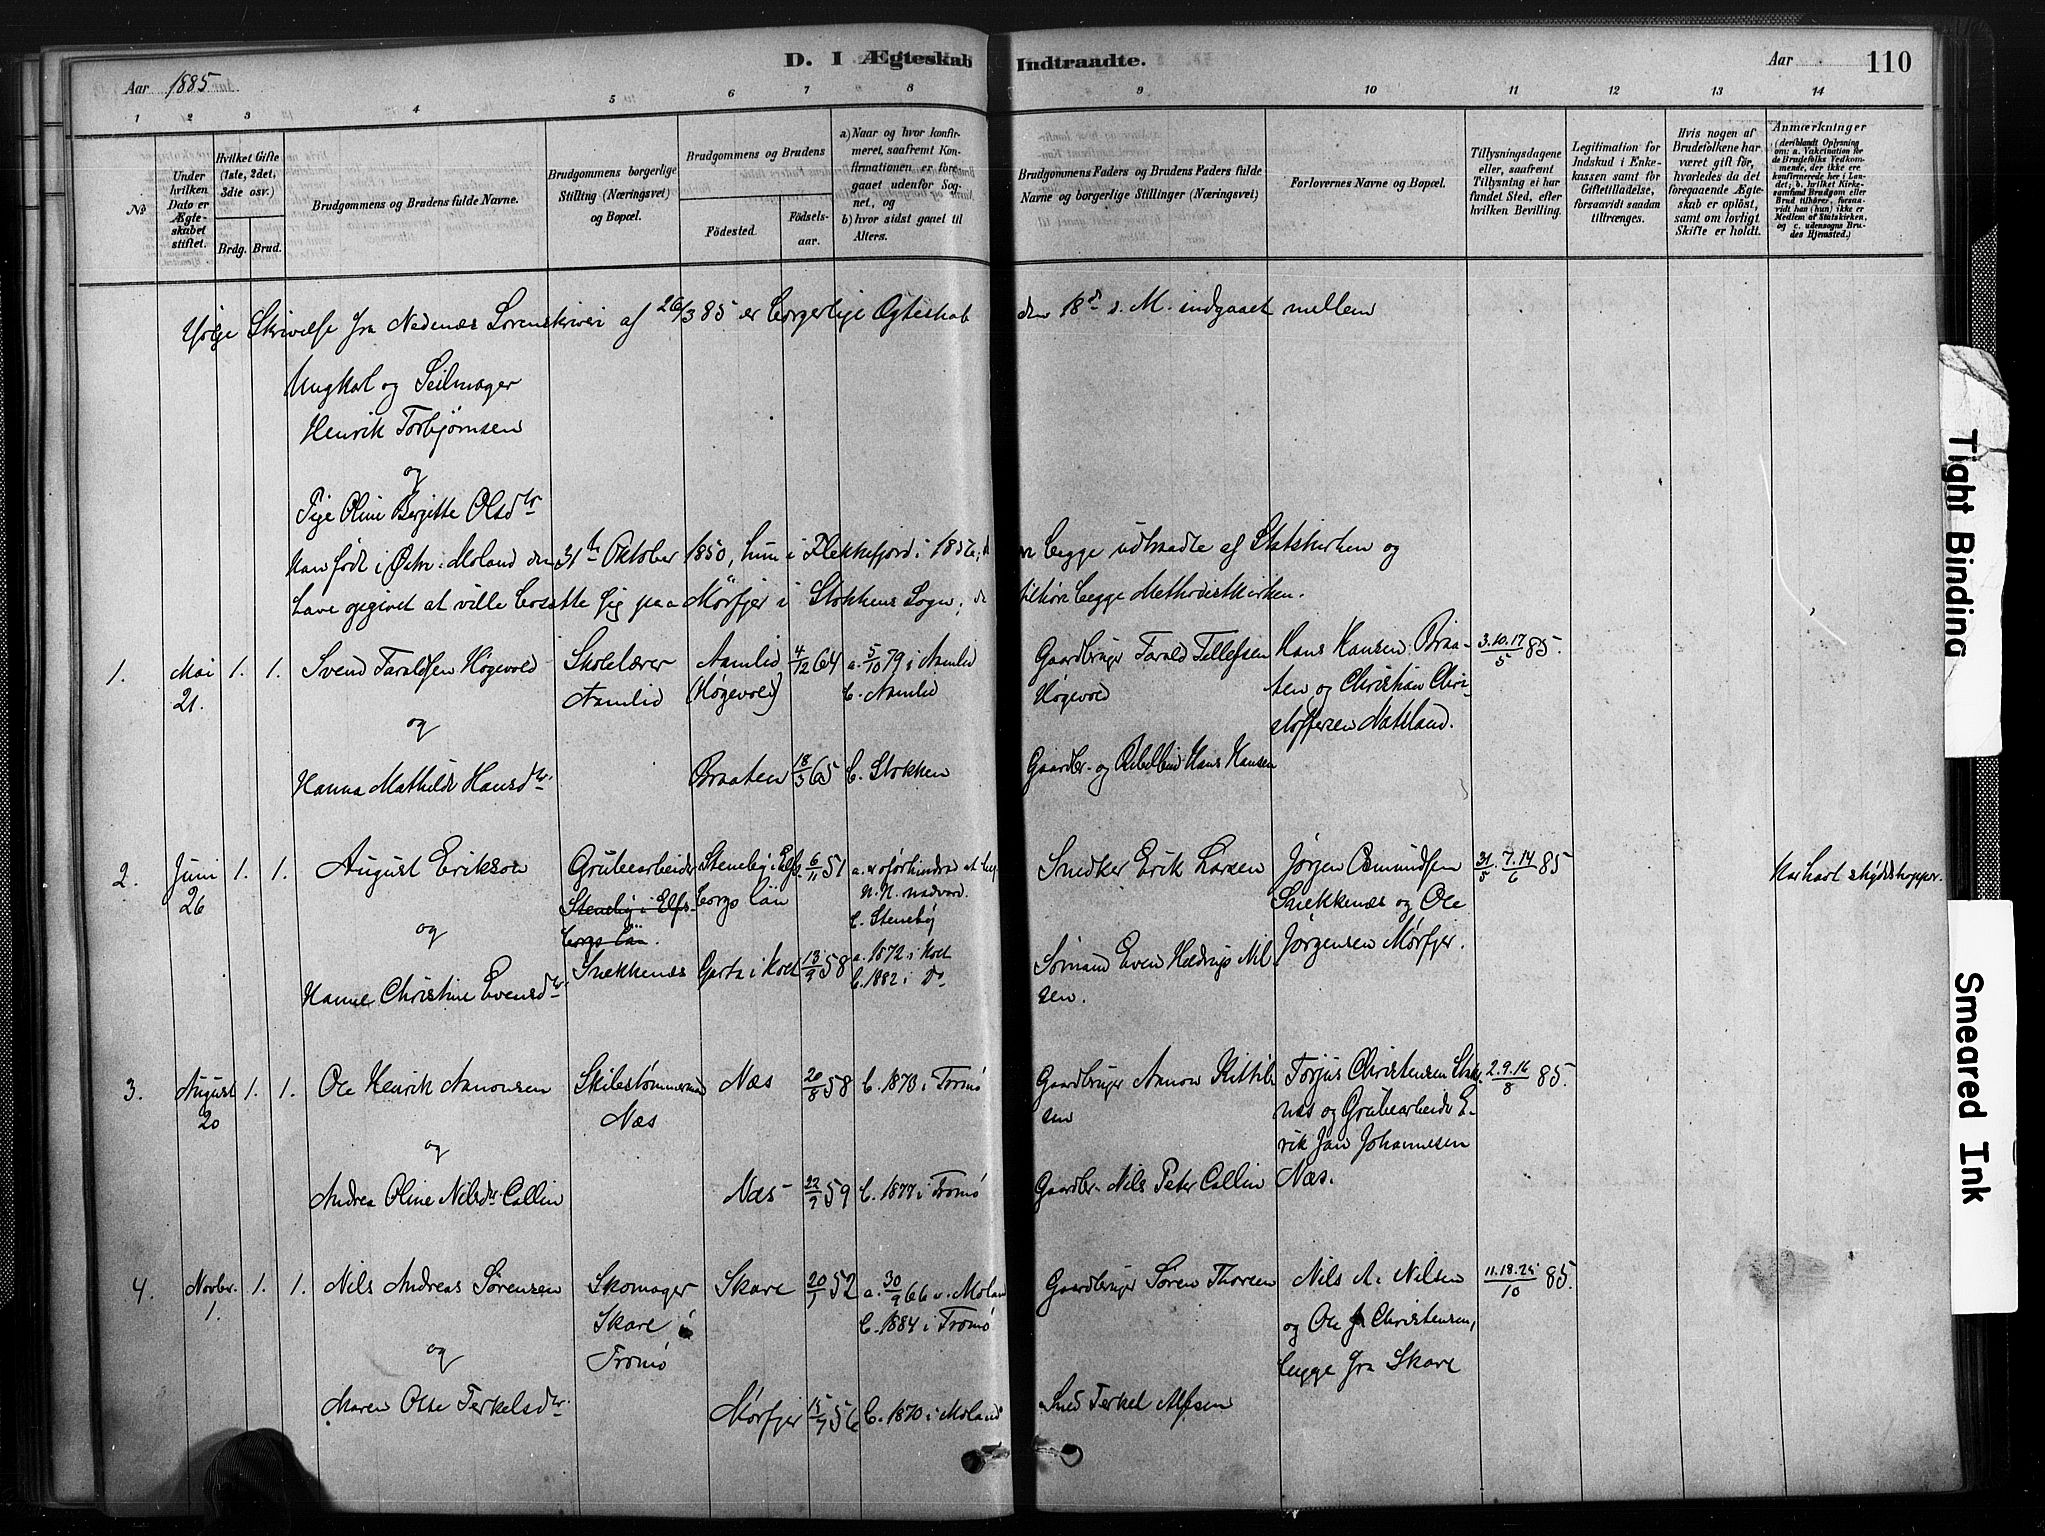 D. I Ægteskab Indtraadte.
Aar 1885.
Aar
110
1 2 3 4 5 6 7 8 9 10 11 12 13 14
№
Under hvilken Dato er Ægteskabet stiftet.
Hvilket Gifte (1ste, 2det, 3die osv.)
Brdg. Brud.
Brudgommens og Brudens fulde Navne.
Brudgommens borgerlige Stilling (Næringsvei) og Bopæl.
Brudgommens og Brudens
Fødested.
Fødselsaar.
a) Naar og hvor konfirmeret, saafremt Konfirmationen er foregaaet udenfor Sognet, og
b) hvor sidst gaaet til Alters.
Brudgommens Faders og Brudens Faders fulde Navne og borgerlige Stillinger (Næringsvei)
Forlovernes Navne og Bopæl.
Tillysningsdagene eller, saafremt Tillysning ei har fundet Sted, efter hvilken Bevilling.
Legitimation for Indskud i Enkekassen samt for Giftetilladelse, forsaavidt saadan tiltrænges.
Hvis nogen af Brudefolkene har været gift før, hvorledes da det foregaaende Ægteskab er opløst, samt om lovligt Skifte er holdt.
Anmærkninger (deriblandt Oplysning om: a. Vakcination for de Brudefolks Vedkommende, der ikke ere konfirmerede her i Landet; b. hvilket Kirkesamfund Brudgom eller Brud tilhører, forsaavidt han (hun) ikke er Medlem af Statskirken, og c. udensogns Brudes Hjemsted.)
Ifølge Skrivelse fra Nedenæs Sorenskriveri af 26/3 85 er borgerlige Ægteskab den 18de s. M. indgaaet mellem
Ungkarl og Seilmager
Henrik Torbjørnsen
og
Pige Oline Bergitte Olsdtr
Han født i Østre Moland den 31te Oktober 1850, hun i Flekkefjord i 1856; de ere begge udtraadte af Statskirken og
have opgivet at ville bosætte sig paa Mørfjer i Stokkens Sogn; de tilhøre begge Methodistkirken.
1. Mai 21. 1. 1. Svend Taraldsen Høgevold Skolelærer Aamlid Aamlid (Høgevold) 4/12 64 a. 5/10 79 i Aamlid b. Aamlid Gaardbruger Tarald Tellefsen Høgevold Hans Hansen Braaten og Christian Christoffersen Natsland. 3.10.17/5 85.
og
Hanna Mathilde Hansdtr. Braaten 18/3 65 b. Stokken Gaardbr. og Hans Hansen
2. Juni 26 1. 1. August Erikson Grubearbeider Steneby i Elfsborgs län. Snækkenæs Steneby i Elfsborgs län 6/11 51 a. uforhindred at beg. N. N. nadvard. b. Steneby Snedker Erik Larsen Jørgen Osmundsen Snekkenæs og Ole Jørgensen Mørfjer. 31/5 7.14/6 85 Har havt skydskopper.
og
Hanne Christine Evensdtr. Garta i Holt 13/9 58 a. 1872 i Holt b. 1882 i Do Sømand Even Hedrup Nilsen.
3. August 20 1. 1. Ole Henrik Aanonsen Skibstømmermand Næs Næs 20/8 58 b. 1873 i Tromø Gaardbruger Aanon Kittilsen Torjus Christensen næs og Grubearbeider Erik Jan Johannesen Næs. 2.9.16/8 85.
og
Andrea Oline Nilsdtr Callin Næs 22/9 59 b. 1877 i Tromø Gaardbr. Nils Peter Callin
4. Novbr. 1. 1. 1. Nils Andreas Sørensen Skomager Skare i Tromø Skare 20/1 52 a. 30/9 66 i Moland b. 1884 i Tromø Gaardbruger Søren Thorsen Nils A. Nilsen og Ole Christensen, begge fra Skare 11.18.25/10 85.
og
Maren Else Terkelsdtr. Mørfjer 15/7 56 b. 1870 i Moland Smed Terkel Alfsen
Tight Binding
Smeared Ink